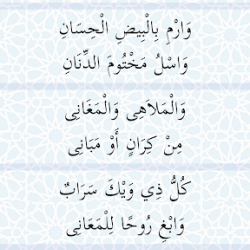 وَارْمِ بِالْبِيضِ الْحِسَانِ
وَاسْلُ مَخْتُومَ الدِّنَانِ
وَالْمَلَاهِى وَالْمَغَانِى
مِنْ كِرَانٍ أَوْ مَبَانِى
كُلُّ ذِي وَيْكَ سَرَابٌ
وَابْغِ رُوحًا لِلْمَعَانِى